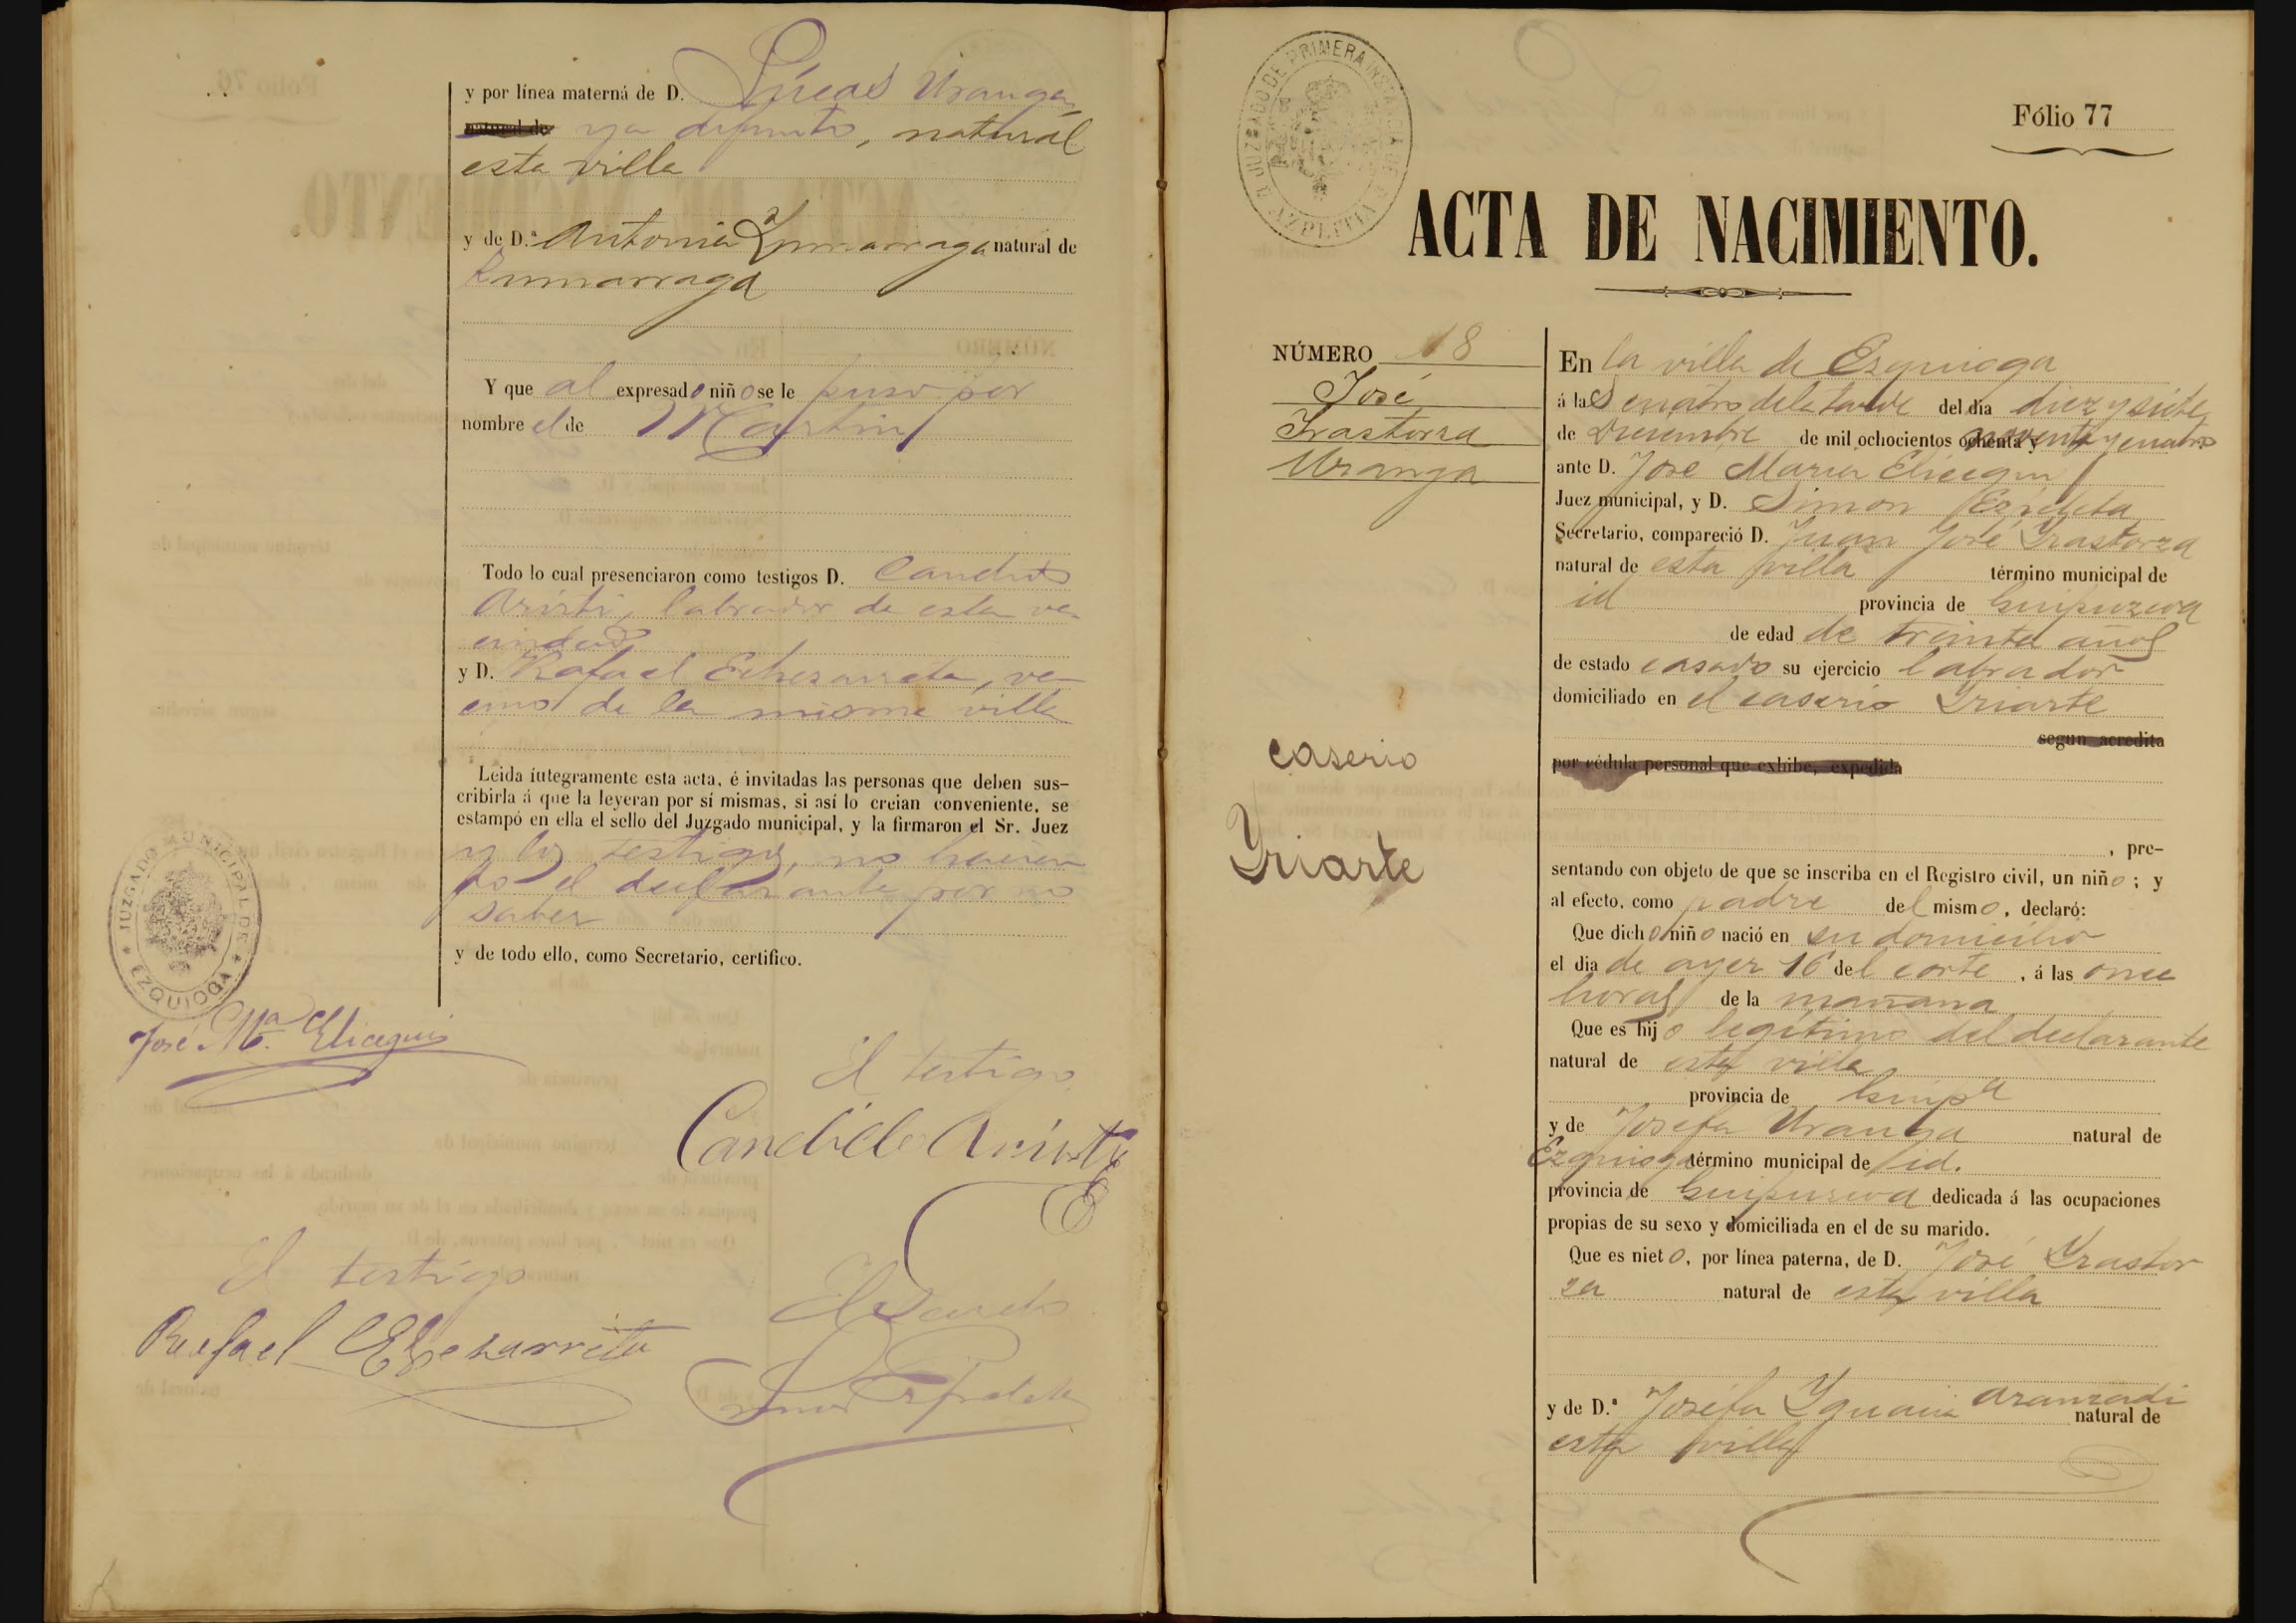 y por línea materna de D. Lúcas Uranga,
natural de ya difunto, natural
esta villa
y de D.ª Antonia Zumarraga natural de
Zumarraga
Y que al expresado niño se le puso por
nombre el de Martin
Todo lo cual presenciaron como testigos D. Candido
Aristi, labrador de esta ve-
cindad
y D. Rafael Echezarreta, ve-
cino de la misma villa
Leida íntegramente esta acta, é invitadas las personas que deben sus-
cribirla á que la leyeran por sí mismas, si así lo creian conveniente, se
estampó en ella el sello del Juzgado municipal, y la firmaron el Sr. Juez
y los testigos, no hacien
do el declarante por no
saber
y de todo ello, como Secretario, certifico.
JUZGADO MUNICIPAL DE EZQUIOGA
José M.ª Elicegui
El testigo
Candido Aristi
El testigo
Rafael Echezarreta
El Secreto
Simon Ezpeleta
JUZGADO DE PRIMERA INSTANCIA DE AZPEITIA
Fólio 77
ACTA DE NACIMIENTO.
NÚMERO 18
José
Irastorza
Uranga
caserio
Yriarte
En la villa de Ezquioga
á las cuatro de la tarde del dia diez y siete
de Diciembre de mil ochocientos ochenta y noventa y cuatro
ante D. José Maria Elicegui
Juez municipal, y D. Simon Ezpeleta
Secretario, compareció D. Juan José Yrastorza
natural de esta villa término municipal de
id provincia de Guipuzcoa
de edad de treinta años
de estado casado su ejercicio labrador
domiciliado en el caserio Yriarte
segun acredita
por cédula personal que exhibe, expedida
, pre-
sentando con objeto de que se inscriba en el Registro civil, un niño; y
al efecto, como padre del mismo, declaró:
Que dicho niño nació en su domicilio
el dia de ayer 16 del corte, á las once
horas de la mañana
Que es hijo legítimo del declarante
natural de esta villa
provincia de Guipª
y de Josefa Uranga natural de
Ezquioga término municipal de id.
provincia de Guipuzcoa dedicada á las ocupaciones
propias de su sexo y domiciliada en el de su marido.
Que es nieto, por línea paterna, de D. José Yrastor
za natural de esta villa
y de D.ª Joséfa Ygnacia Aranzadi natural de
esta villa